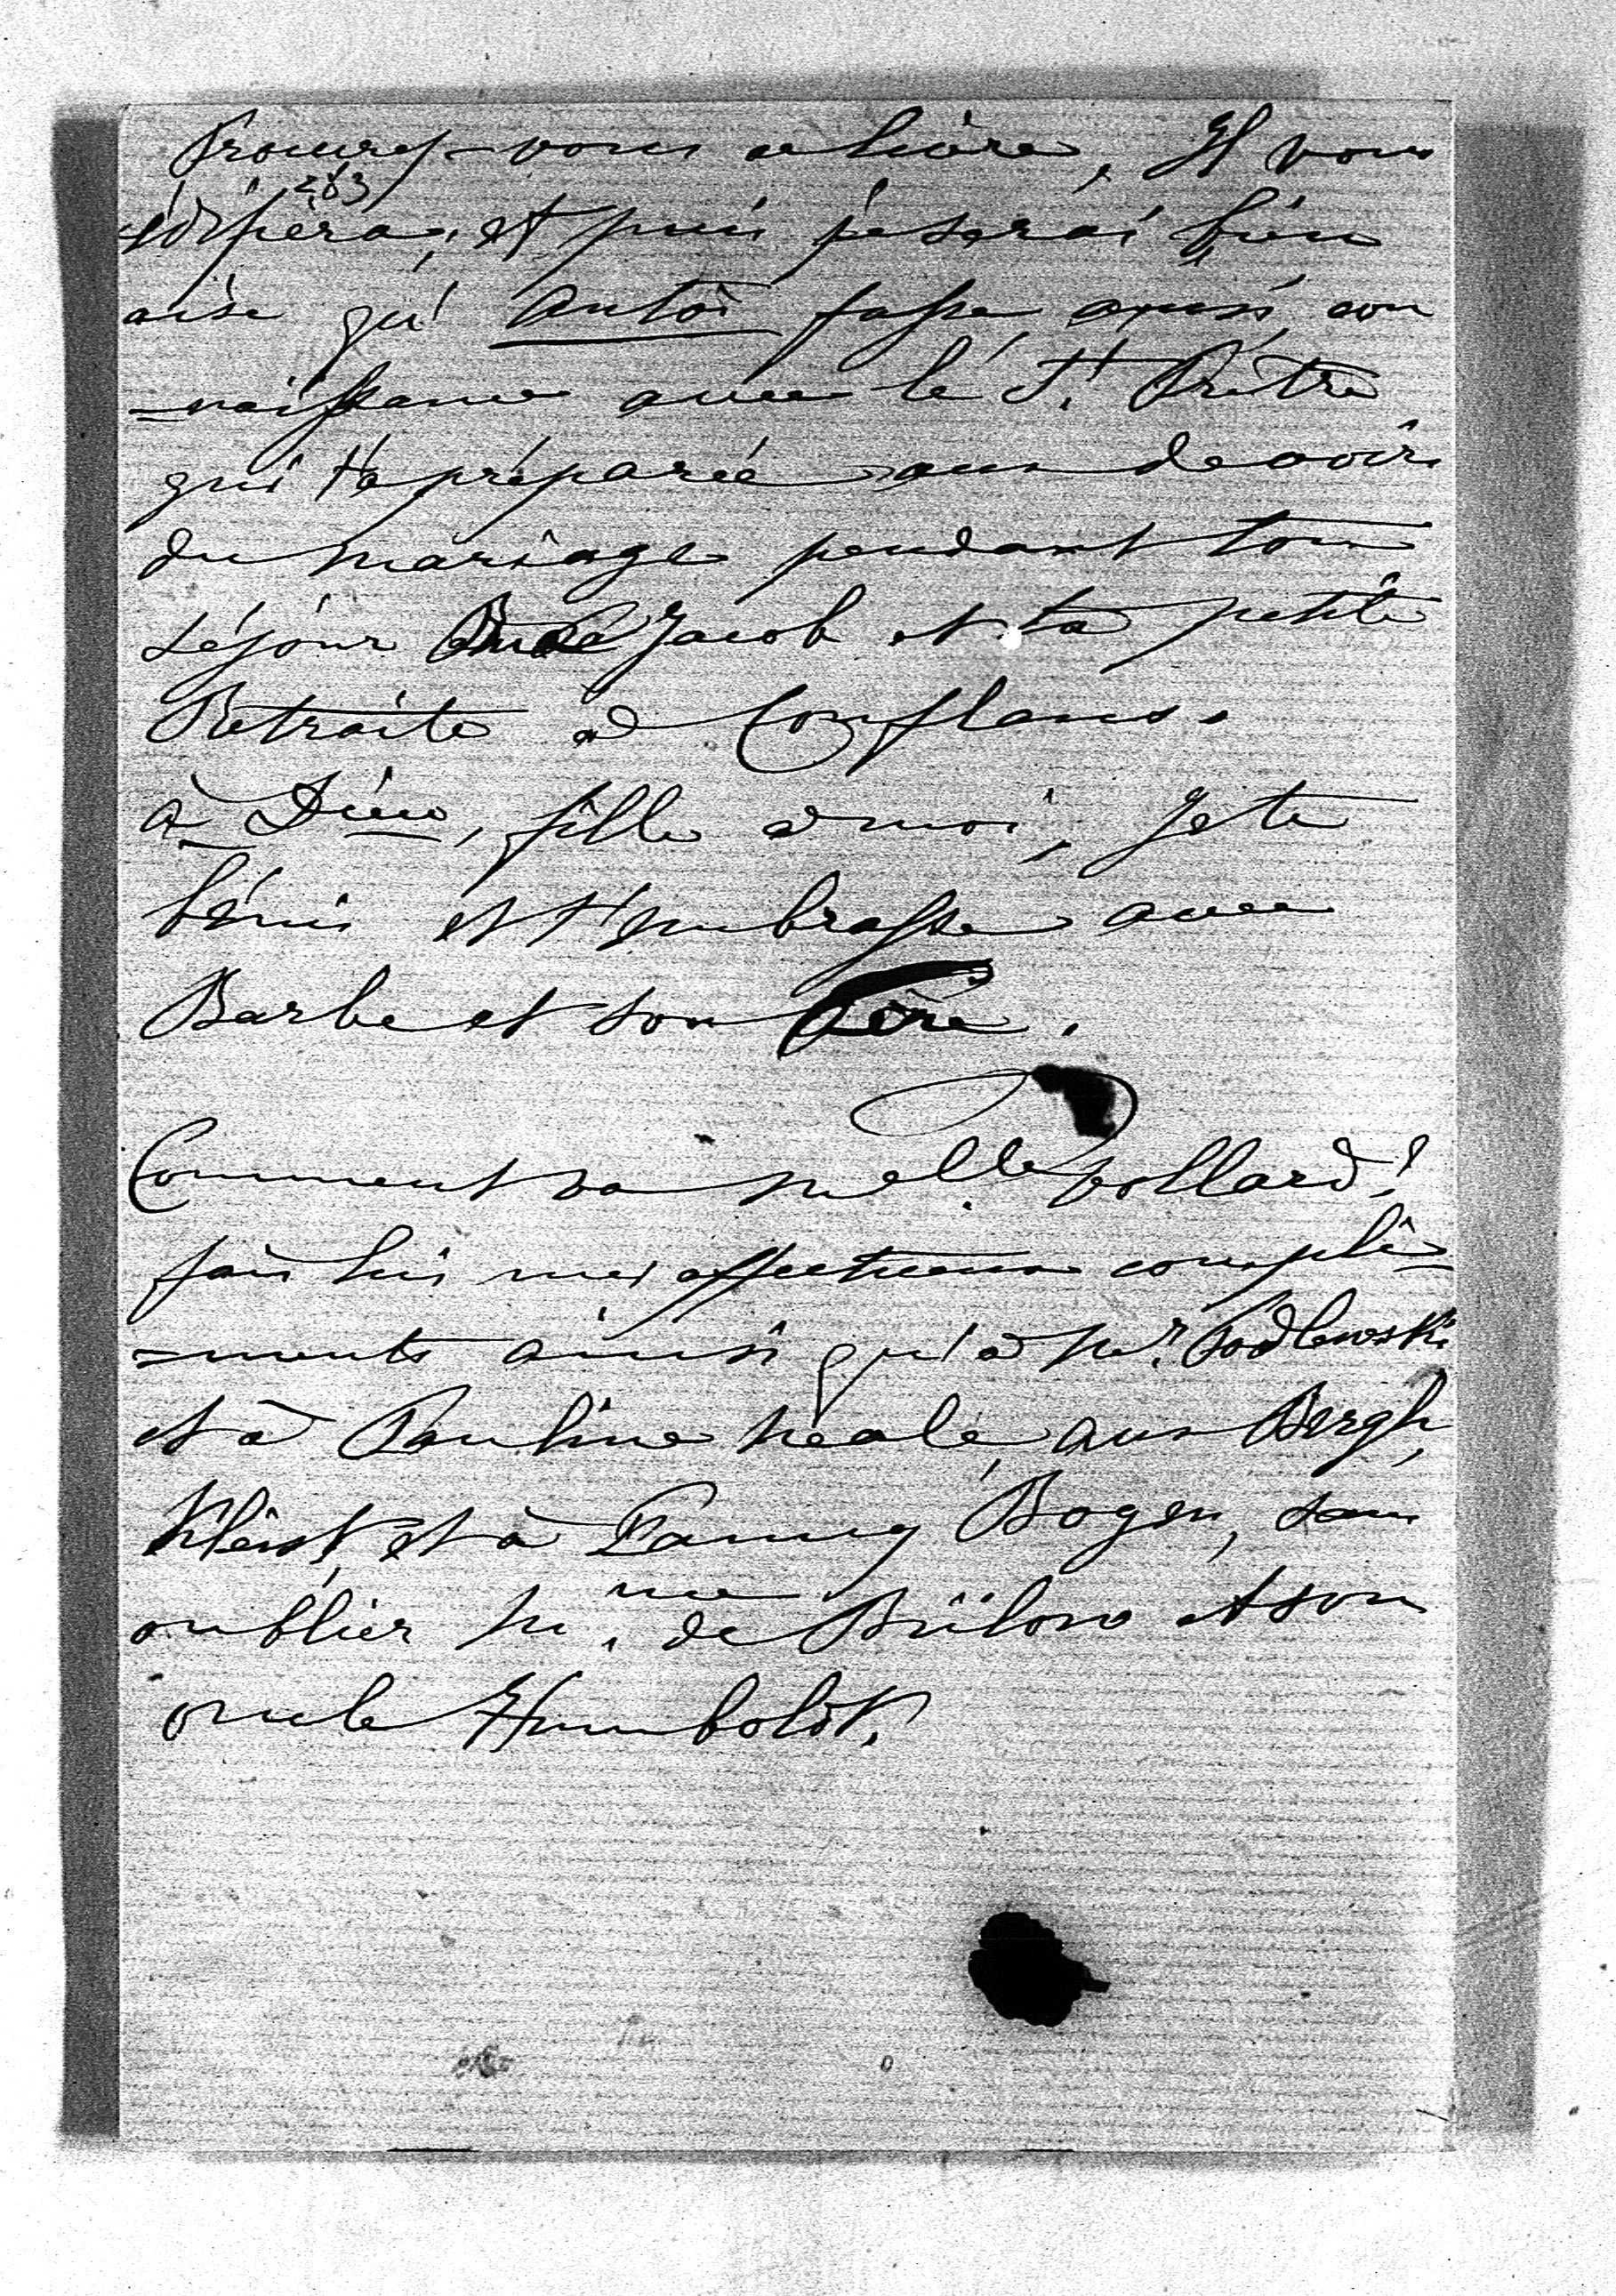 Procurez-vous ce livre, Il vous
283
édifiera, et puis je serai bien
aise qu' Antoi fasse, aussi, con
=naissance avec le St. Prêtre
qui t'a préparée aux devoirs
du mariage pendant ton
séjour Jacob et ta petite
Retraite à Conflans.
à Dieu, fille à moi, je te
bénis et t'embrasse avec
Barbe et son Père.
Comment va Melle. Pollard?
fais lui mes affectueux compli=
=ments ainsi qu'à Mr. Podlewski
et à Pauline Néale, aux Bergh,
Kleist, et à Fanny Bogen, sans
oublier Mme. de Bülow et son
oncle Humboldt.